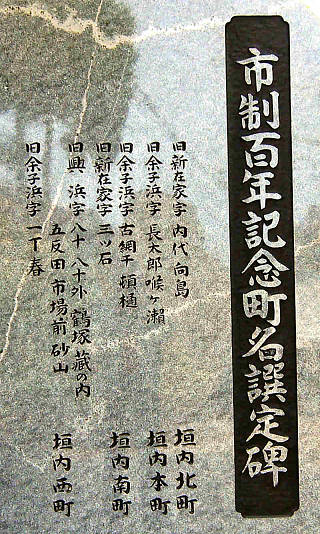 市制百年記念町名選定碑
旧新在家字 内代 向島 垣内北町
旧余子浜字 長太郎 喉ヶ瀬 垣内本町
旧余子浜字 古網千 頬樋
旧新在家字 三ッ石 垣内南町
旧興浜字 八十 八十外 鶴塚 蔵の内
五反田 市場前 砂山 垣内西町
旧余子浜字 一丁春